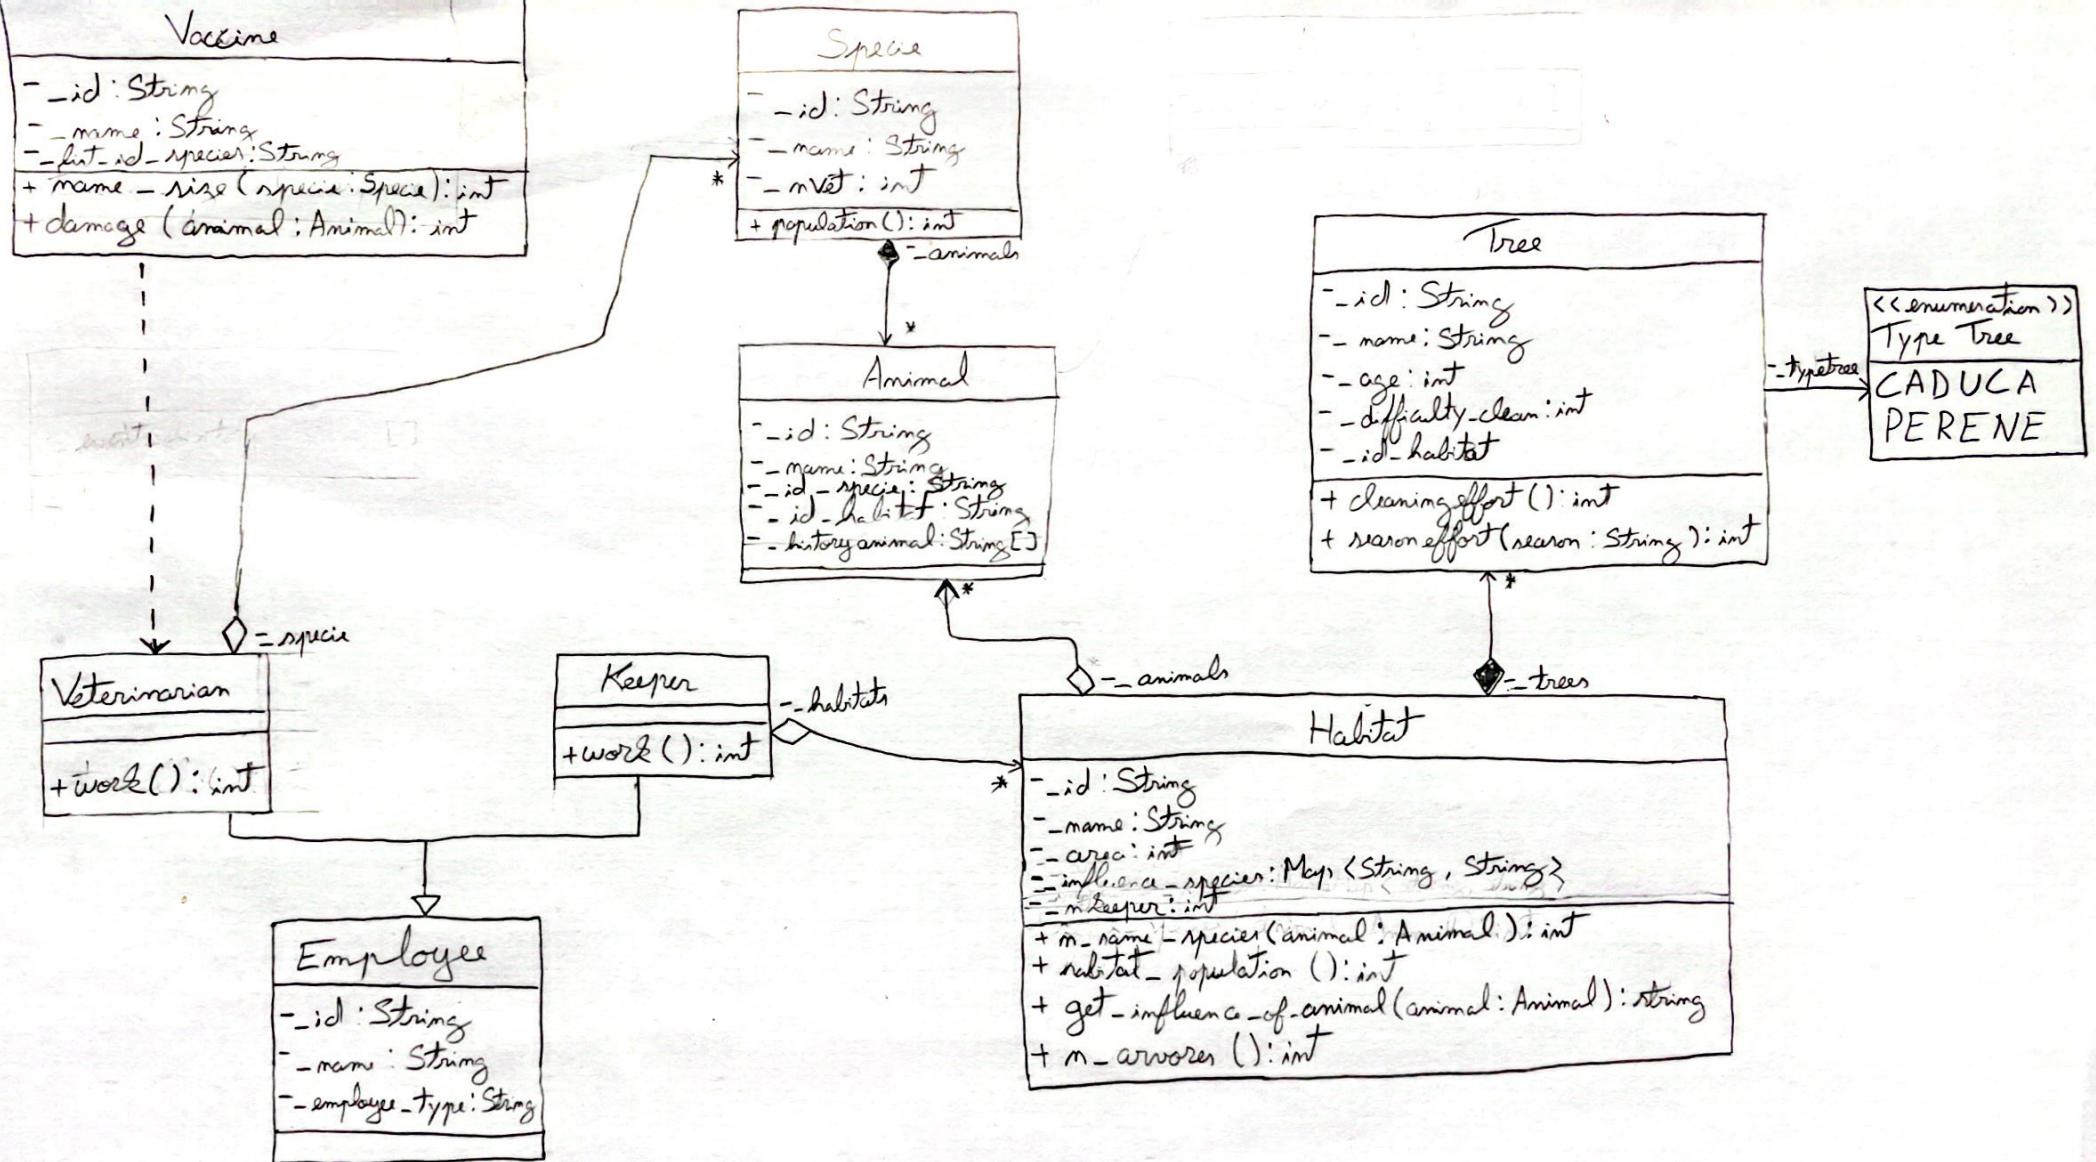 Vaccine
- _id : String
- _name : String
- _list_id_species : String
+ name_size (specie : Specie) : int
+ damage (animal : Animal) : int
Specie
- _id : String
- _name : String
- _nVet : int
+ population() : int
- _animals
*
*
Animal
- _id : String
- _name : String
- _id_specie : String
- _id_habitat : String
- _historyanimal : String[]
*
Tree
- _id : String
- _name : String
- _age : int
- _difficulty_clean : int
- _id_habitat
+ cleaningeffort () : int
+ seasoneffort (season : String) : int
*
- _typetree
<<enumeration>>
Type Tree
CADUCA
PERENE
- _specie
Veterinarian
+ work() : int
Keeper
+ work() : int
- _habitats
*
- _animals
- _trees
Habitat
- _id : String
- _name : String
- _area : int
- _influence_species : Map <String, String>
- _nkeeper : int
+ n_name_species (animal : Animal) : int
+ habitat_population () : int
+ get_influence_of_animal (animal : Animal) : string
+ n_arvores () : int
Employee
- _id : String
- _name : String
- _employee_type : String